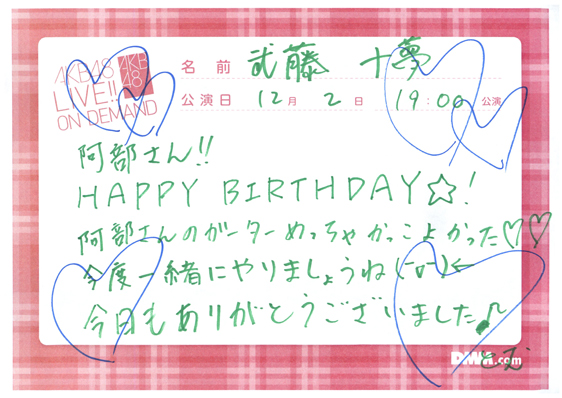 AKB48
LIVE!!
ON DEMAND
AKB
48
名前 武藤 十夢
公演日 12月 2日 19:00 公演
阿部さん!!
HAPPY BIRTHDAY☆!
阿部さんのがーターめっちゃかっこよかった♡♡
今度一緒にやりましょうね(-o-)←
今日もありがとうございました♪
とむ
DMM.com